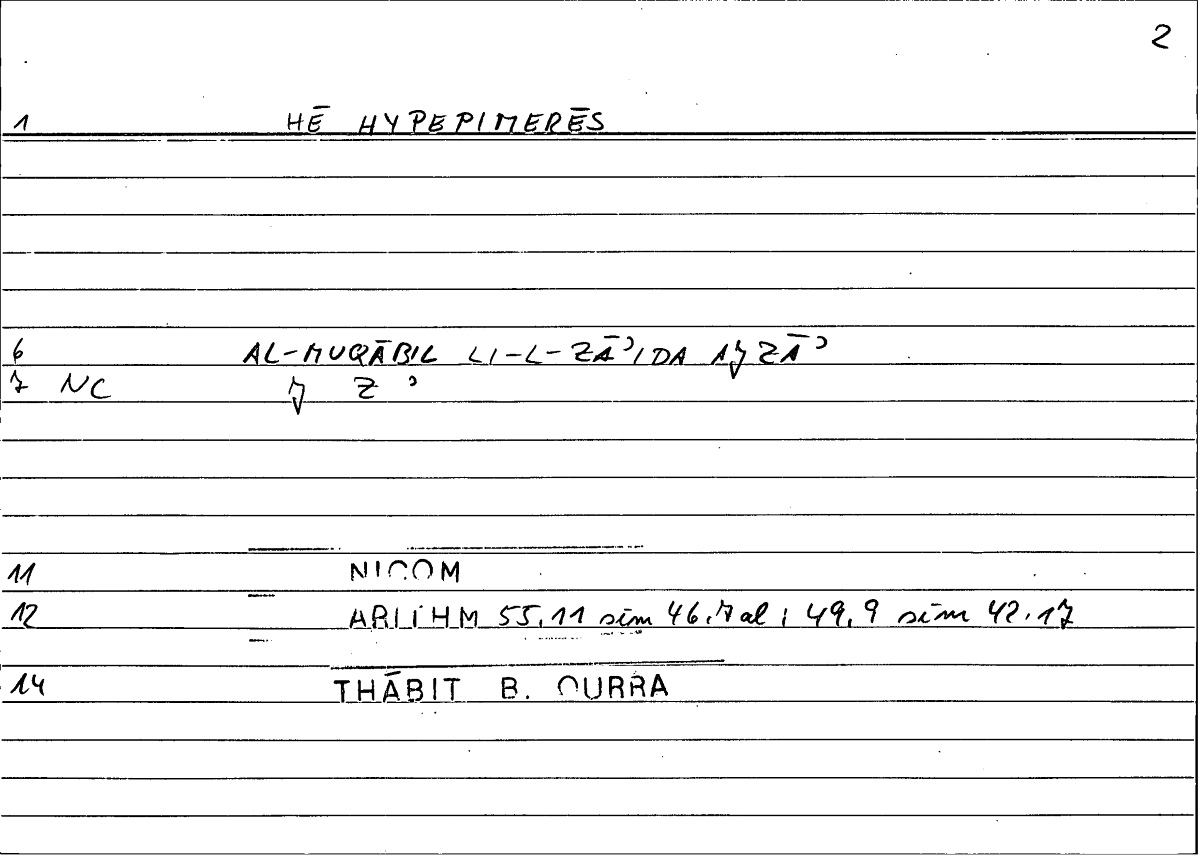 2
1 HĒ HYPEPIMERĒS
6 AL-MUQĀBIL LI-L-ZĀʾIDA AJZĀʾ
7 NC J Z ʾ
11 NICOM
12 ARITHM 55.11 sim 46.7 al ; 49.9 sim 42.17
14 THĀBIT B. QURRA